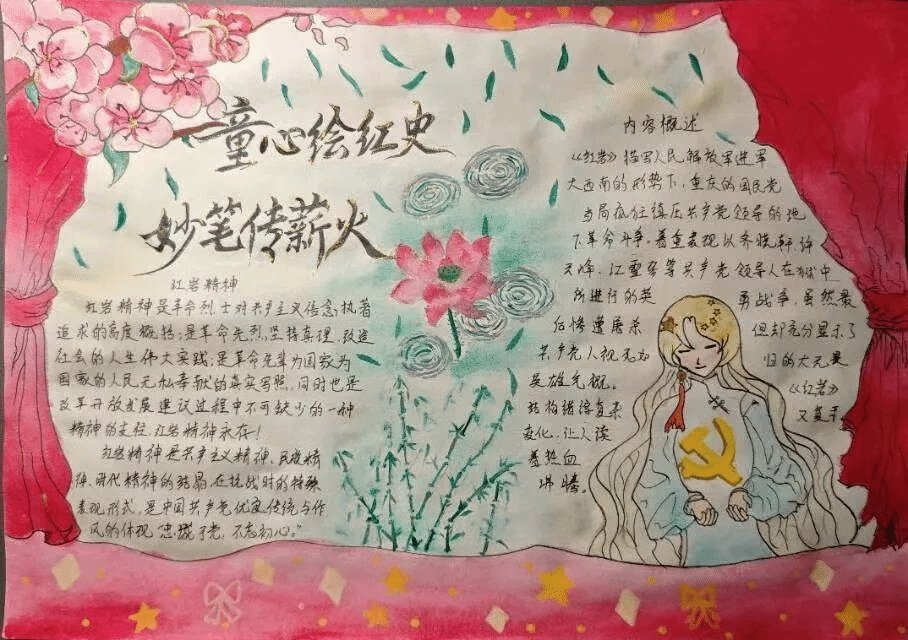 童心绘红史
妙笔传薪火
红岩精神
红岩精神是革命烈士对共产主义信念执著
追求的高度概括;是革命先烈坚持真理、改造
社会的人生伟大实践;是革命先辈为国家为
国家的人民无私奉献的真实写照,同时也是
改革开放发展建议过程中不可缺少的一种
精神的支柱,红岩精神永存!
红岩精神是共产主义精神、民族精
神、时代精神的结晶在抗战时的特殊
表现形式,是中国共产党优良传统与作
风的体现"忠诚于党,不忘初心。"
内容概述
《红岩》描写人民解放军进军
大西南的形势下,重庆的国民党
当局疯狂镇压共产党领导的地
下革命斗争。着重表现以齐晓轩、许
云峰、江雪琴等共产党领导人在狱中
所进行的英 勇战争,虽然最
后惨遭屠杀 但却充分显示了
共产党人视死如 归的大无畏
英雄气概。 《红岩》
结构错综复杂 又变
变化,让人读
着热血
沸腾。